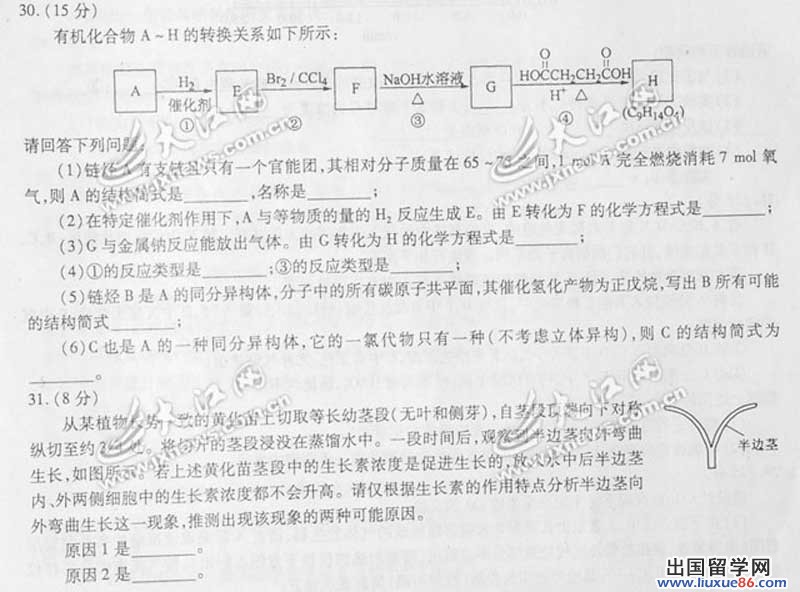 30.(15分)
有机化合物A~H的转换关系如下所示:
A H₂ 催化剂 ① E Br₂/CCl₄ ② F NaOH水溶液 △ ③ G HOCCH₂CH₂COH O O H⁺ △ ④ H (C₉H₁₄O₄)
请回答下列问题:
(1)链烃A有支链且只有一个官能团,其相对分子质量在65~75之间,1 mol A完全燃烧消耗7 mol氧
气,则A的结构简式是________,名称是________;
(2)在特定催化剂作用下,A与等物质的量的H₂反应生成E。由E转化为F的化学方程式是________;
(3)G与金属钠反应能放出气体。由G转化为H的化学方程式是________;
(4)①的反应类型是________;③的反应类型是________;
(5)链烃B是A的同分异构体,分子中的所有碳原子共平面,其催化氢化产物为正戊烷,写出B所有可能
的结构简式________;
(6)C也是A的一种同分异构体,它的一氯代物只有一种(不考虑立体异构),则C的结构简式为
________。
31.(8分)
从某植物长势一致的黄化苗上切取等长幼茎段(无叶和侧芽),自茎段顶端向下对称
纵切至约3/4处。将切开的茎段浸没在蒸馏水中。一段时间后,观察到半边茎向外弯曲
生长,如图所示。若上述黄化苗茎段中的生长素浓度是促进生长的,放入水中后半边茎
内、外两侧细胞中的生长素浓度都不会升高。请仅根据生长素的作用特点分析半边茎向
外弯曲生长这一现象,推测出现该现象的两种可能原因。
半边茎
原因1是________。
原因2是________。
大江网
www.jxnews.com.cn
大江网
www.jxnews.com.cn
大江网
www.jxnews.com.cn
大江网
www.jxnews.com.cn
出国留学网
www.liuxue86.com